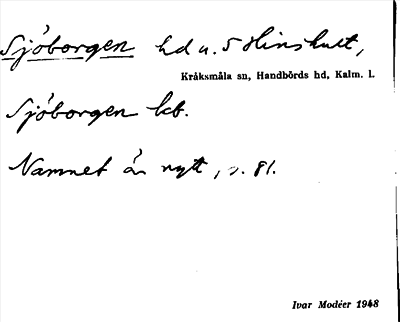 Sjöborgen hd u. 5 Hinshult,
Kråksmåla sn, Handbörds hd, Kalm. l.
Sjöborgen kb.
Namnet är nytt, s. 81.
Ivar Modéer 1948